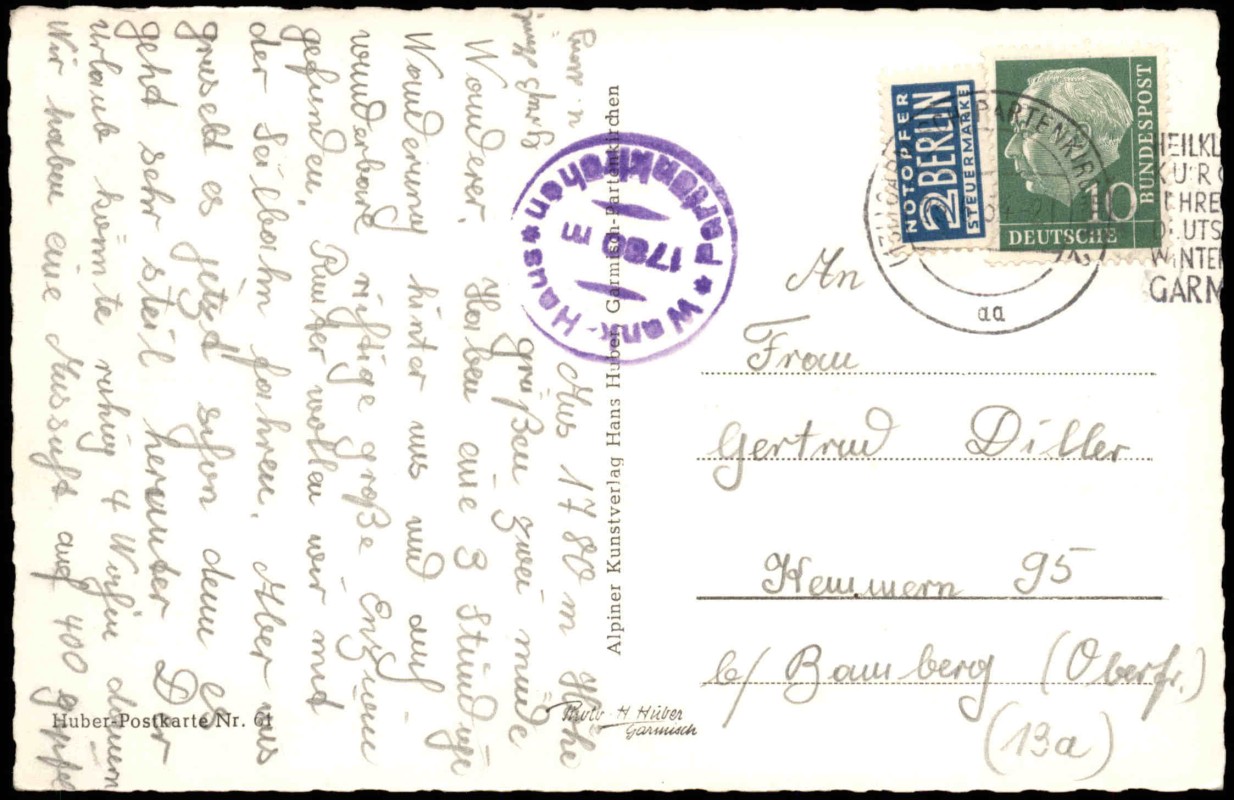 Aus 1780 m Höhe
grüßen zwei müde
Wanderer. Haben eine 3 Stündige
Wanderung hinter uns und auf
wunderbare richtige große Enzian
gefunden. Runter wollen wir mit
der Seilbahn fahren. Aber uns
gruselt es jetzt schon denn es
geht sehr steil herunter. Der
Urlaub könnte ruhig 4 Wochen dauern
Wir haben eine Aussicht auf 400 gipfel
Alpiner Kunstverlag Hans Huber, Garmisch-Partenkirchen
Huber-Postkarte Nr. 61
Photo-H Huber
Garmisch
★ Wank-Haus ★ Partenkirchen
1780 m
NOTOPFER
2 BERLIN
STEUERMARKE
DEUTSCHE
BUNDESPOST
10
PARTENKIRCH
aa
HEILKL
KURO
DEUTS
WINTER
GARM
An
Frau
Gertrud Diller
Kemmern 95
b/ Bamberg (Oberfr.)
(13a)